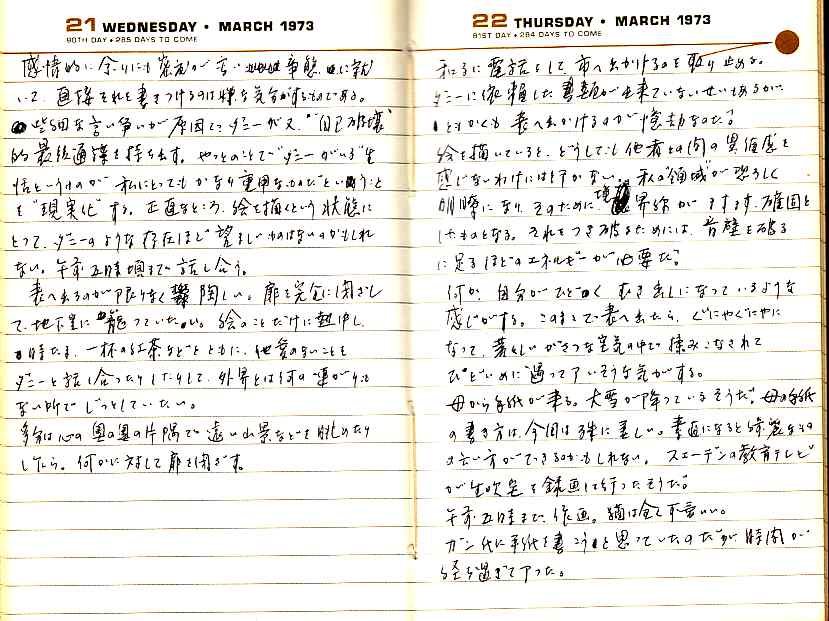 21 WEDNESDAY • MARCH 1973
80TH DAY • 285 DAYS TO COME
感情的に余りにも密度が高い事態に就
いて、直接それを書きつけるのは嫌な気分がするものである。
些細な言い争いが原因で、ダニーが又、"自己破壊"
的最後通牒を持ち出す。やっとのことで"ダニーがいる"生
活というものが、私にとってもかなり重用なものだということ
を"現実化"する。正直なところ、絵を描くという状態に
とって、ダニーのような存在ほど望ましいものはないのかもしれ
ない。午前五時頃まで話し合う。
表へ出るのが限りなく陶しい。扉を完全に閉ざし
て、地下室に籠っていたい。絵のことだけに熱中し、
時たま、一杯の紅茶などとともに、他愛のないことを
ダニーと話し合ったりしたりして、外界とは何の運がりも
ない所でじっとしていたい。
多分は心の奥の奥の片隅で遠い山景などを眺めたり
しながら。何かに対して扉を閉ざす。
22 THURSDAY • MARCH 1973
81ST DAY • 284 DAYS TO COME
和子に電話をして、市へ出かけるのを取り止める。
ダニーに依頼した書類が出来ていないせいもあるが、
ともかくも表へ出かけるのが億劫なのだ。
絵を描いていると、どうしても他者との間の異和感を
感じないわけには行かない。私の"領域"が恐ろしく
明瞭になり、そのために、境界線がますます確固と
したものとなる。それをつき破るためには、音壁を破る
に足るほどのエネルギーが必要だ。
何か、自分がひどくむき出しになっているような
感じがする。このままで表へ出たら、ぐにゃぐにゃに
なって、荒々しいがさつな空気の中で揉みこなされて
ひどいめに遇ってしまいそうな気がする。
母から手紙が来る。大雪が降っているそうだ。母の手紙
の書き方は、今回は殊に美しい。素直になると綺麗なもの
の言い方ができるのかもしれない。スエーデンの教育テレビ
が生吹足を録画に行ったそうだ。
午前五時まで、作画。猫は全く不要いい。
ガン代に手紙を書こうと思っていたのだが時間が
経ち過ぎてしまった。